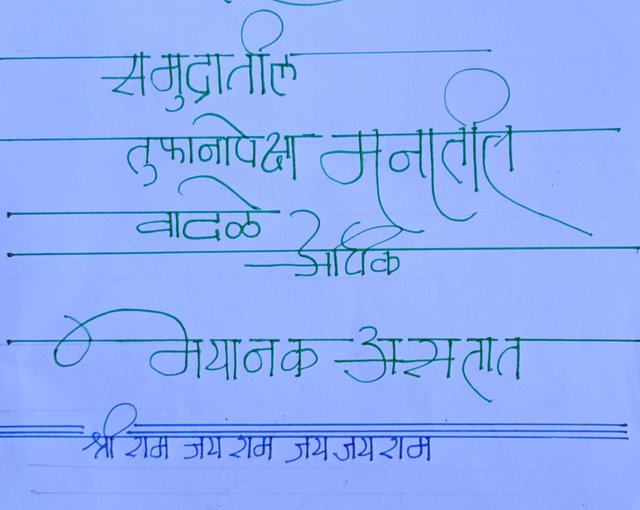 समुद्रातील
तुफानापेक्षा मनातील
वादळे
अधिक
भयानक असतात
श्री राम जय राम जय जय राम